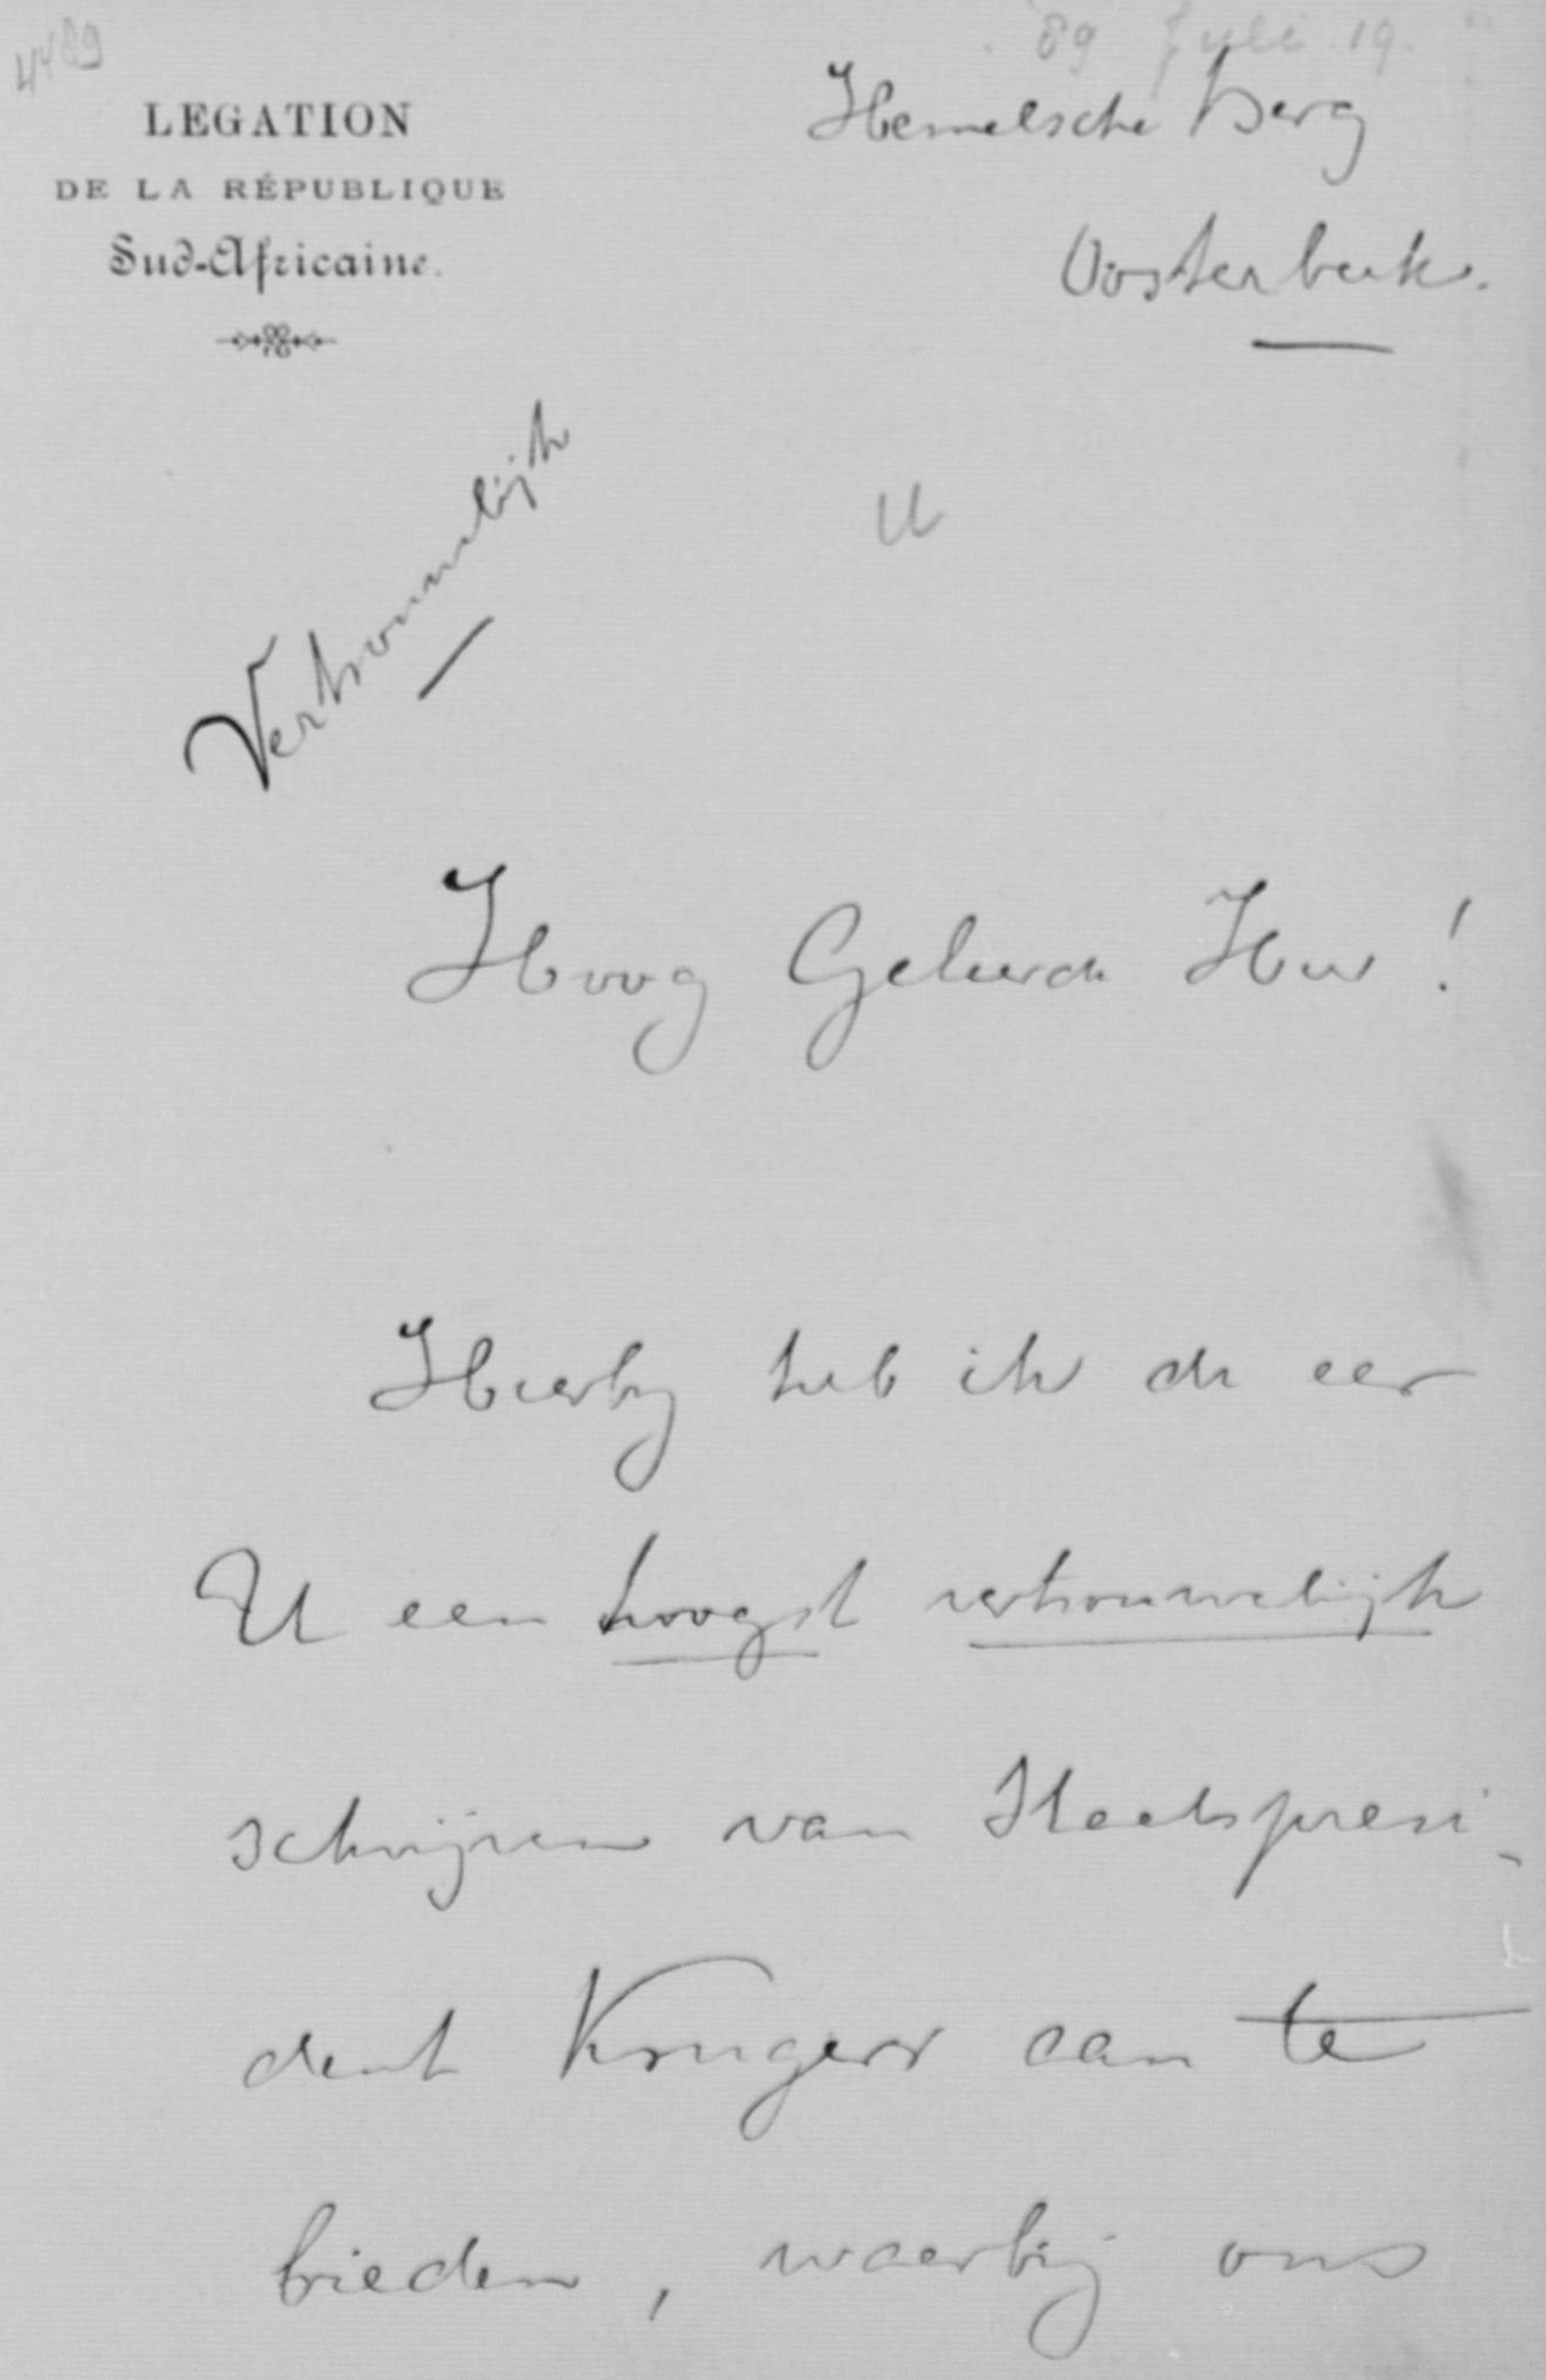 4489
'89 Juli 19.
LEGATION
DE LA RÉPUBLIQUE
Sud-Africaine.
Hemelsche Berg
Oosterbeek.
Vertrouwelijk
Hoog Geleerde Heer!
Hierbij heb ik de eer
U een hoogst vertrouwelijk
schrijven van Staatspresi-
dent Kruger aan te
bieden, waarbij ons